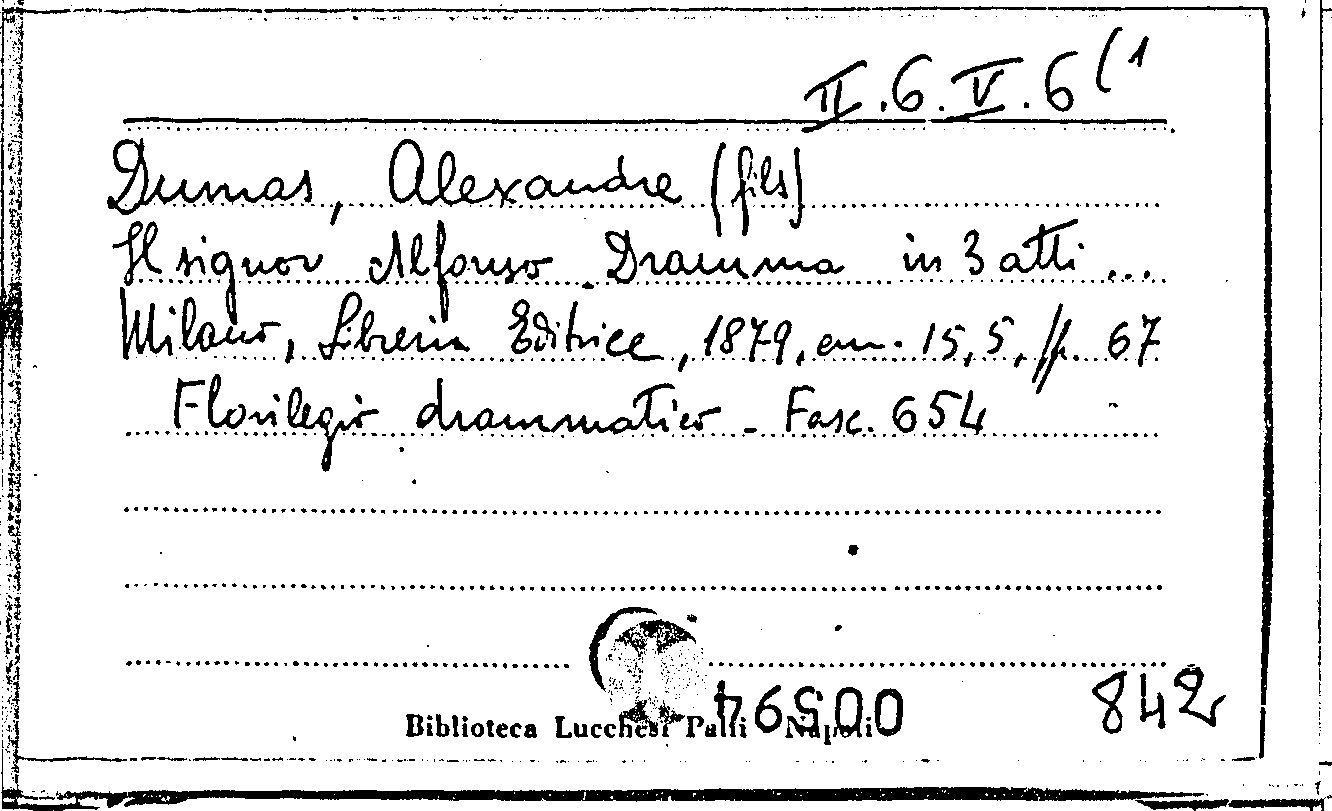 II.6.V.6(1
Dumas, Alexandre (fils)
Il signor Alfonso. Dramma in 3 atti ...
Milano, Libreria Editrice, 1879, cm. 15,5, pp. 67
Florilegio drammatico - Fasc. 654
Biblioteca Lucchesi Palli Napoli
842